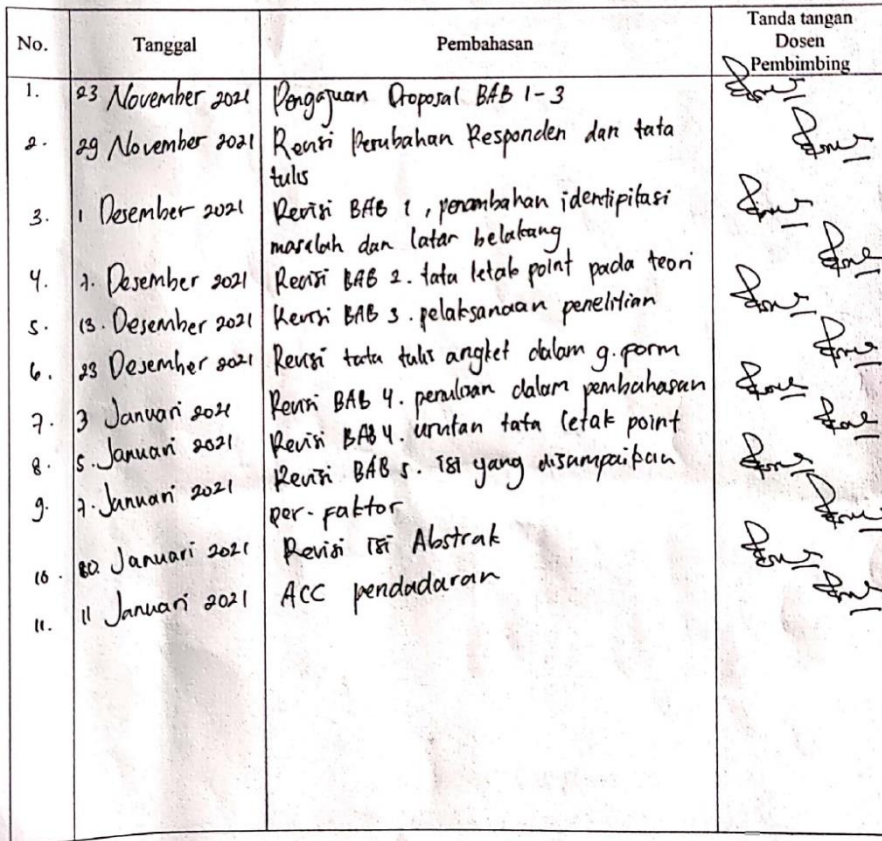 No. Tanggal Pembahasan Tanda tangan
Dosen
Pembimbing
1. 23 November 2021 Pengajuan Proposal BAB 1-3
2. 29 November 2021 Revisi Perubahan Responden dan tata
tulis
3. 1 Desember 2021 Revisi BAB 1, penambahan identipikasi
masalah dan latar belakang
4. 7. Desember 2021 Revisi BAB 2. tata letak point pada teori
5. 13. Desember 2021 Revisi BAB 3. pelaksanaan penelitian
6. 23 Desember 2021 Revisi tata tulis angket dalam g.form
7. 3 Januari 2021 Revisi BAB 4. penulisan dalam pembahasan
8. 5. Januari 2021 Revisi BAB 4. urutan tata letak point
9. 7. Januari 2021 Revisi BAB 5. isi yang disampaikan
per-faktor
10. Januari 2021 Revisi isi Abstrak
11. 11 Januari 2021 ACC pendadaran